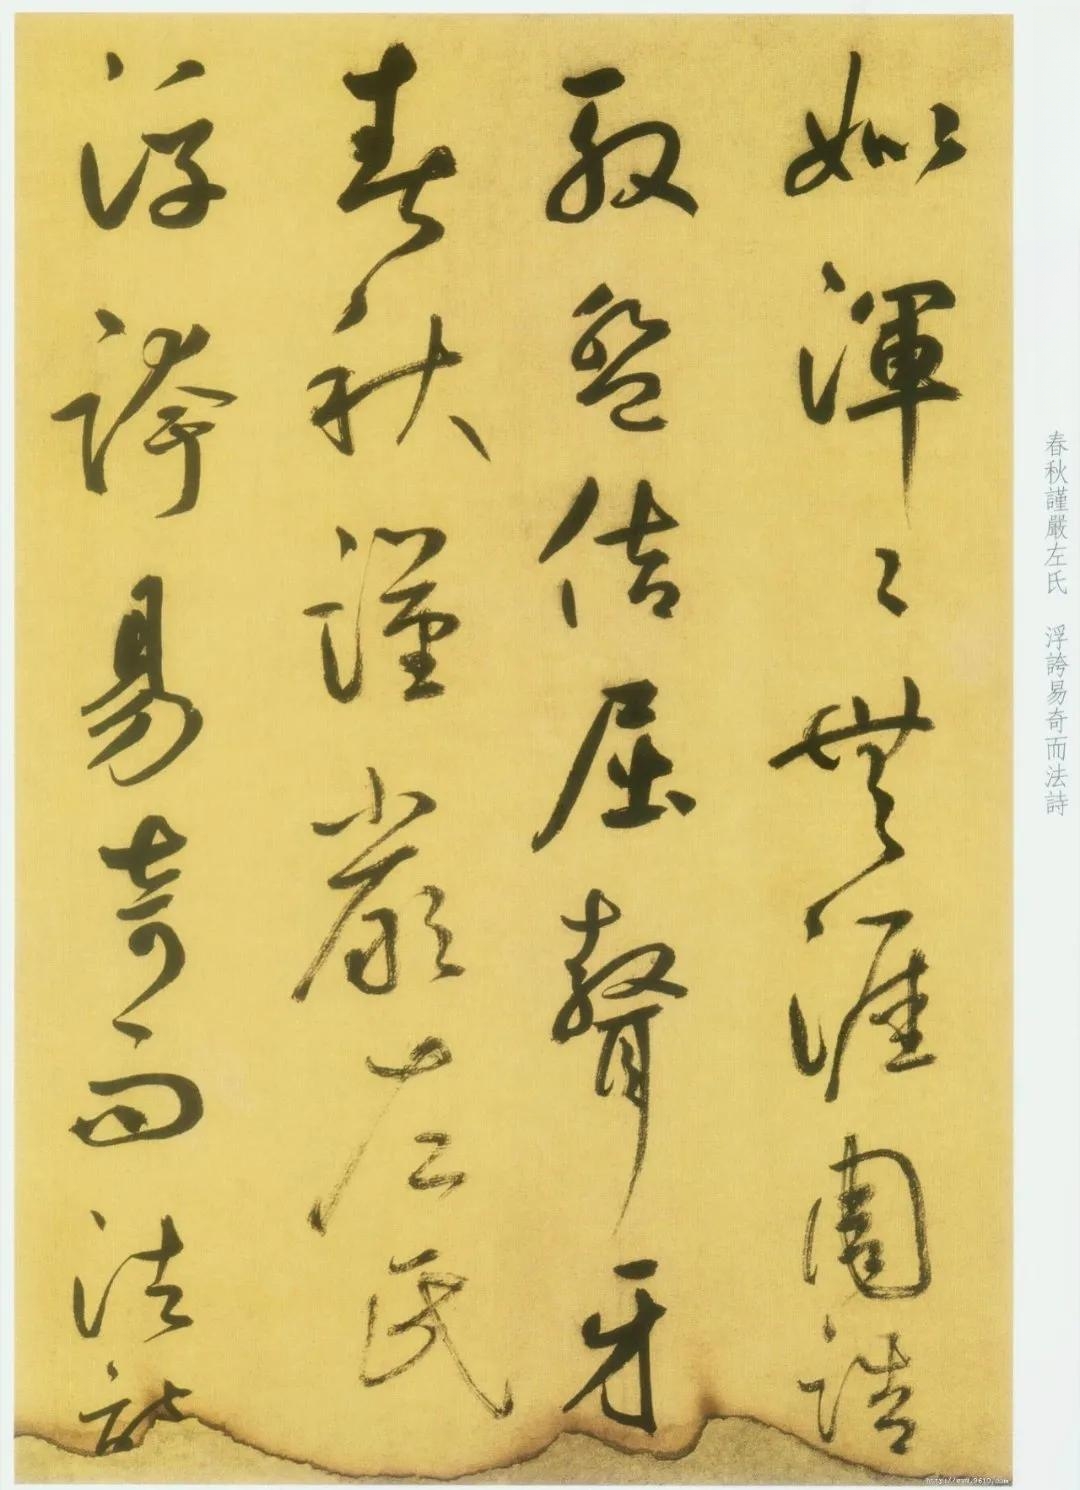 春秋謹嚴左氏 浮誇易奇而法詩
姒渾〻無涯周誥
殷盤佶屈聱牙
春秋謹嚴左氏
浮誇易奇而法詩
http://www.9610.com